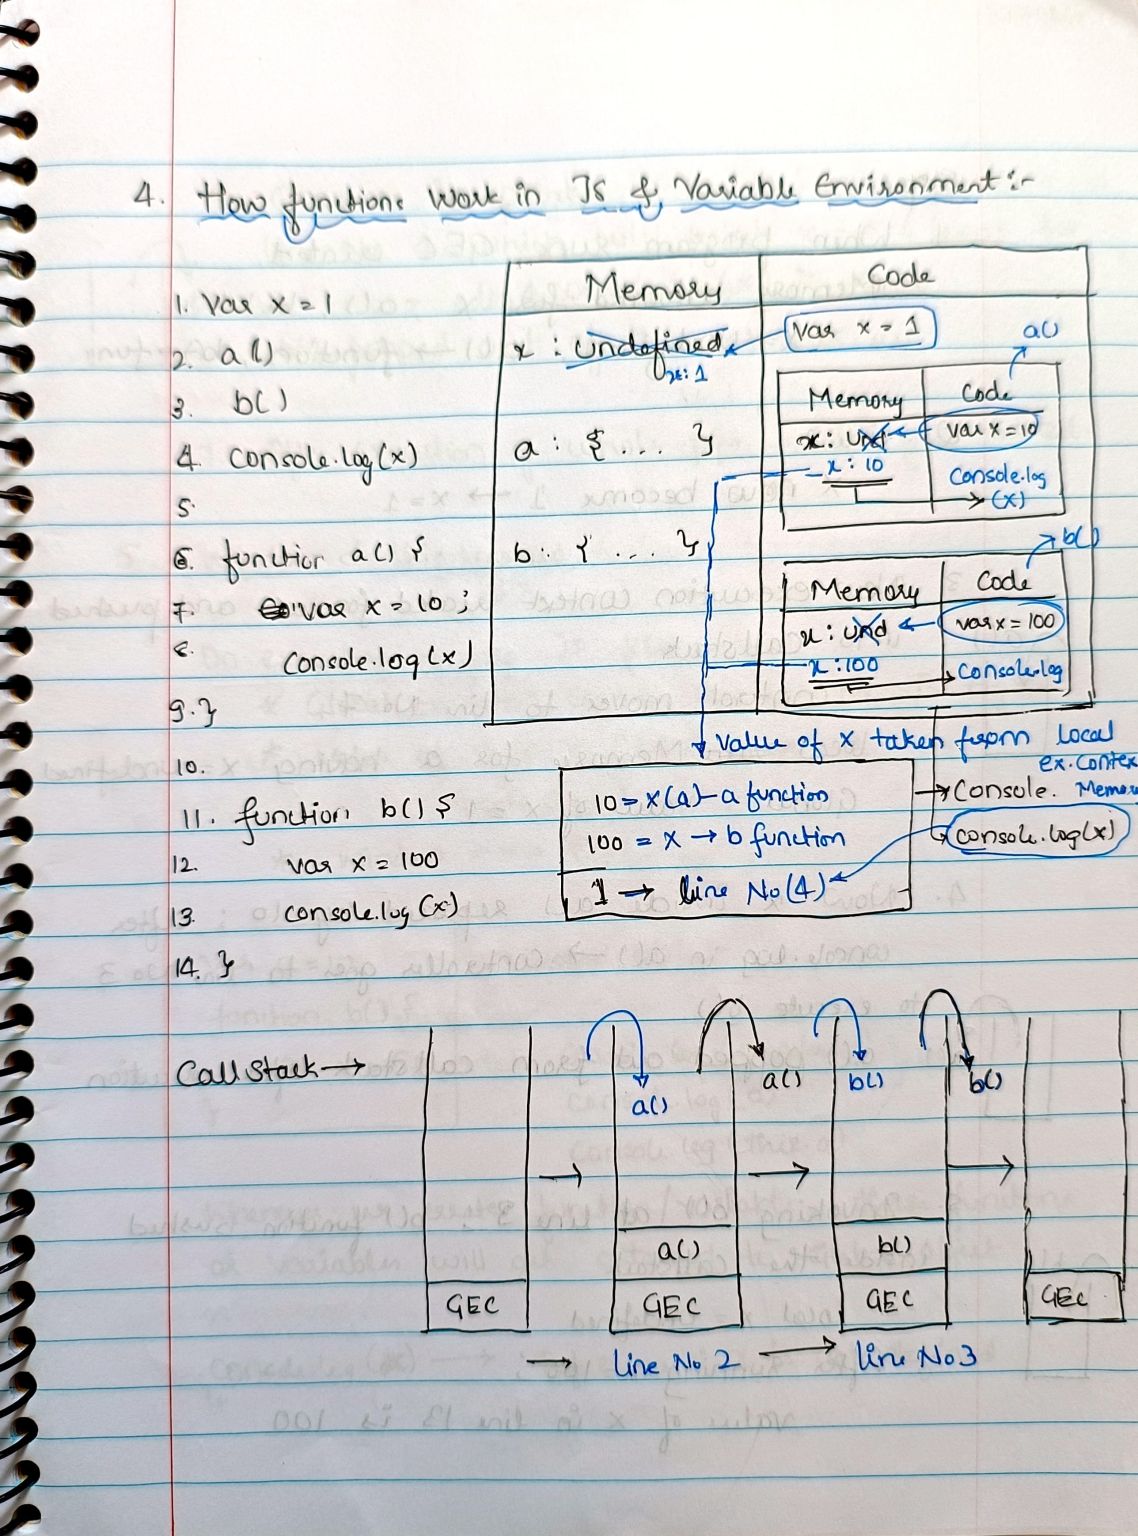 4. How functions Work in JS & Variable Environment :-
1. Var x = 1
2. a()
3. b()
4. console.log(x)
5.
6. function a() {
7. var x = 10 ;
8. console.log(x)
9. }
10.
11. function b() {
12. var x = 100
13. console.log(x)
14. }
Memory
Code
x : undefined
x: 1
Var x = 1
a : { ... }
b : { ... }
a()
Memory
Code
x: und
var x = 10
x : 10
Console.log
(x)
b()
Memory
Code
x : und
var x = 100
x : 100
Console.log
value of x taken from local
ex. Contex
Memor
10 = x(a) - a function
100 = x → b function
1 → line No (4)
Console.
console.log(x)
Call Stack →
a()
a()
b()
b()
a()
b()
GEC
GEC
GEC
GEC
→ line No 2 → line No 3